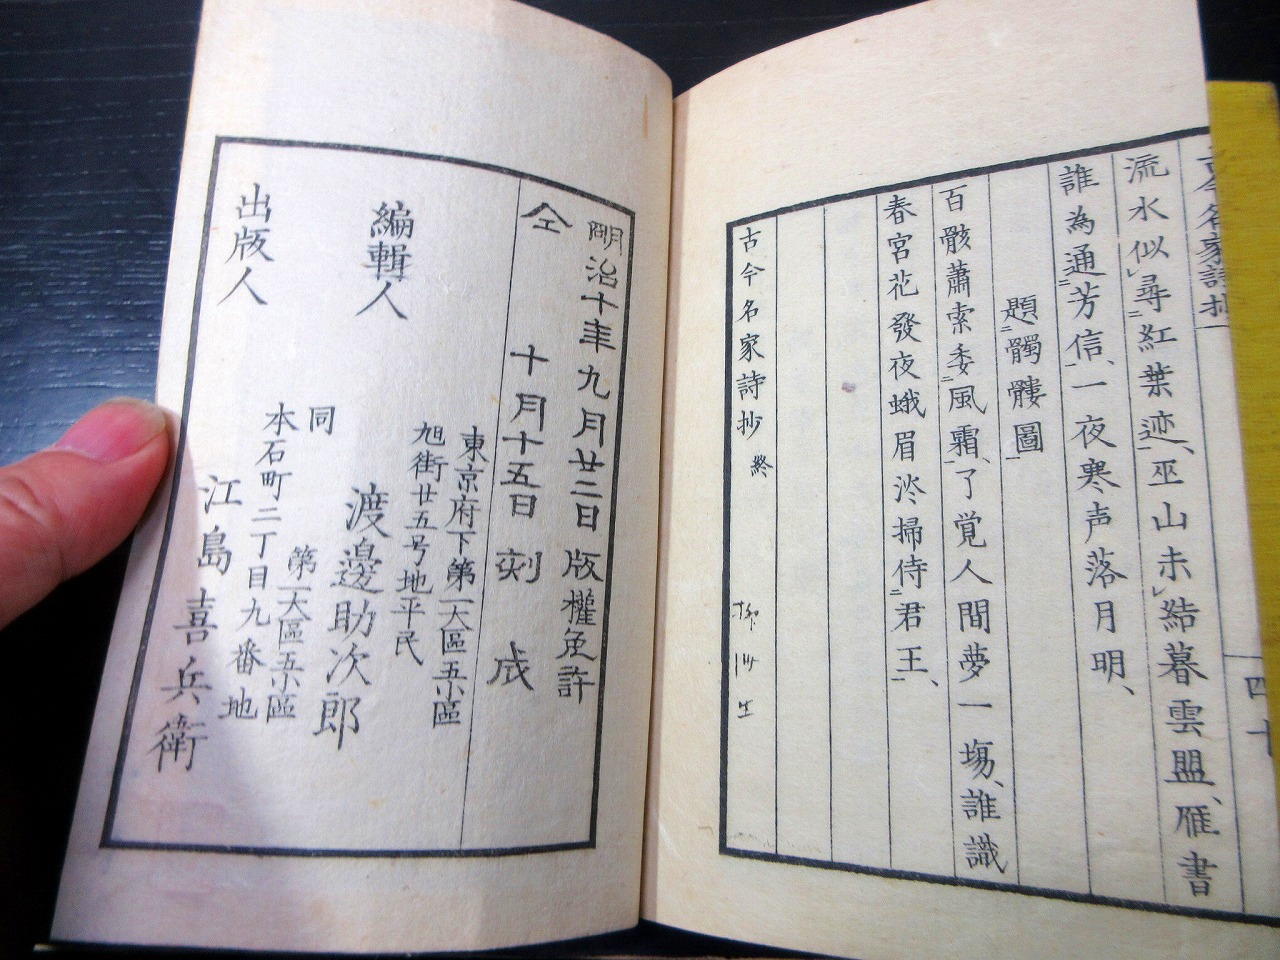 古今名家詩抄
四十
流水似尋紅葉迹、巫山未結暮雲盟、雁書
誰為通芳信、一夜寒声落月明、
題髑髏圖
百骸蕭索委風霜、了覚人間夢一場、誰識
春宮花發夜蛾眉淡掃侍君王、
古今名家詩抄 終
明治十年九月廿二日版權免許
仝 十月十五日刻成
東京府下第一大區五小區
旭街廿五号地平民
編輯人 渡邊助次郎
同 第一大區五小區
本石町二丁目九番地
出版人 江島喜兵衛